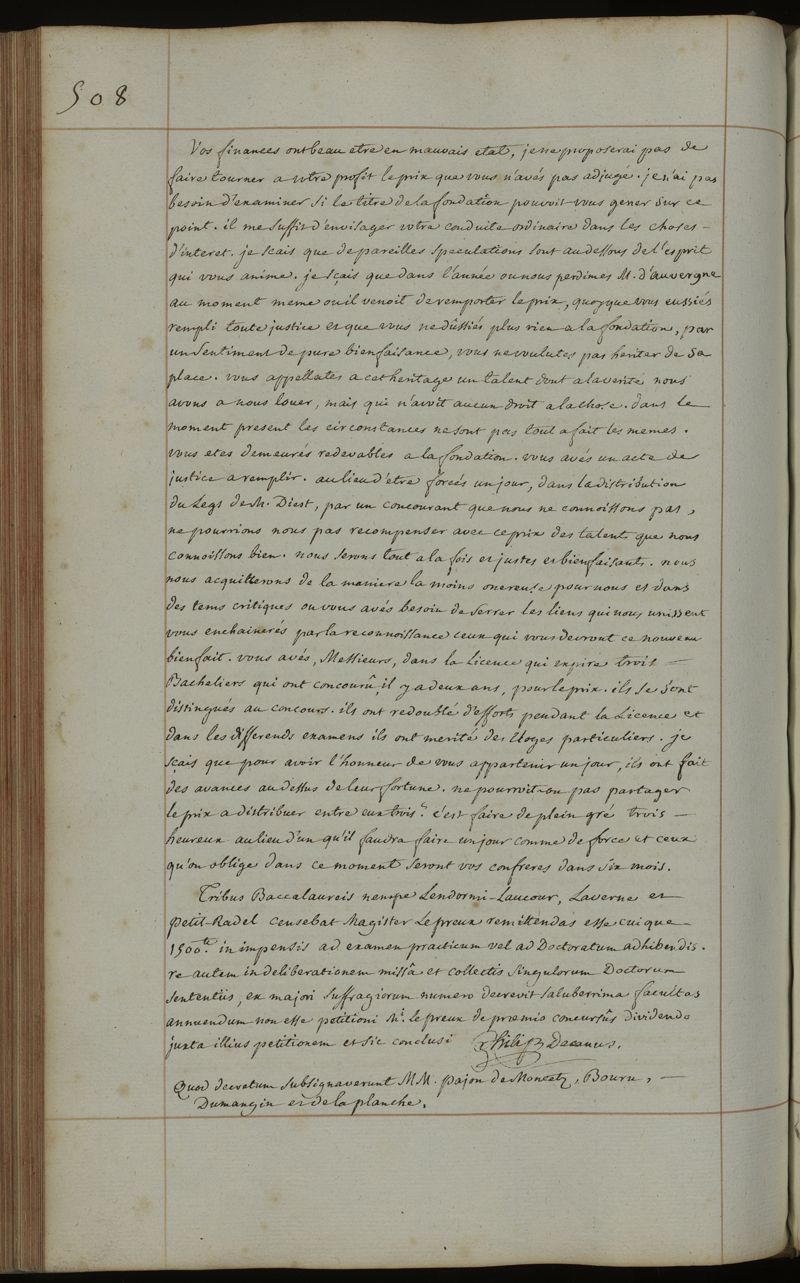 508
Vos finances ont beau etre en mauvais etat, je ne proposerai pas de
faire tourner a votre profit le prix que vous n'avés pas adjugé. je n'ai pas
besoin d'examiner si le titre de la fondation pouvoit vous gener sur ce
point. il me suffit d'envisager votre conduite ordinaire dans les choses -
d'interet. je scais que de pareilles speculations sont au dessous de l'esprit
qui vous anime. je sçais que dans l'année ou nous perdimes M. d'auvergne
au moment meme ou il venoit de remporter le prix, quoyque vous eussiés
rempli toute justice et que vous ne dûssiés plus rien a la fondation, par
un sentiment de pure bienfaisance, vous ne voulutes pas heriter de sa
place. vous appellates a cet heritage un talent dont a la verité nous
avons a nous louer, mais qui n'avoit aucun droit a la chose. dans le
moment present les circonstances ne sont pas tout a fait les memes.
vous etes demeurés redevables a la fondation. vous avés un acte de
justice a remplir. au lieu d'etre forcés un jour, dans la distribution
du Legs de M. Diest, par un concourant que nous ne connoissons pas,
ne pourrions nous pas recompenser avec ce prix des talents que nous
connoissons bien. nous serons tout a la fois et justes et bienfaisants. nous
nous acquitterons de la maniere la moins onereuse pour nous et dans
des tems critiques ou vous avés besoin de serrer les liens qui nous unissent
vous enchainerés par la reconnoissance ceux qui vous devront ce nouveau
bienfait. vous avés, Messieurs, dans la Licence qui expire trois —
Bacheliers qui ont concourû, il y a deux ans, pour le prix. ils se sont
distingués au concours. ils ont redoublé d'efforts pendant la Licence et
dans les differends examens ils ont merité des Eloges particuliers. je
sçais que pour avoir l'honneur de vous appartenir un jour, ils ont fait
des avances au dessus de leur fortune. ne pourroit-on pas partager
le prix a distribuer entre eux trois? c'est faire de plein gré trois —
heureux au lieu d'un qu'il faudra faire un jour comme de force et ceux
qu'on oblige dans ce moment seront vos confreres dans six mois.
Tribus Baccalaureis nempe Lendormi-Laucour, Laverne et
Petit-Radel censebat Magister Le preux remittendas esse cuique —
1500 tt. in impensis ad examen practicum vel ad Doctoratum adhibendis.
re autem in deliberationem missâ et collectis singulorum Doctorum
sententiis, ex majori suffragiorum numero decrevit saluberrima facultas
annuendum non esse petitioni Mi. le preux de praemio concursûs dividendo
juxta illius petitionem et sic conclusi Philip Decanus.
Quod decretum subsignaverunt MM. Pajon de Moncets, Bouru, —
Dumangin et de la planche.